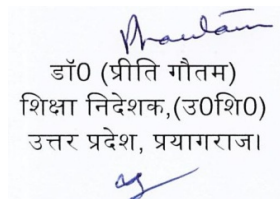 डॉ0 (प्रीति गौतम)
शिक्षा निदेशक,(उ0शि0)
उत्तर प्रदेश, प्रयागराज।